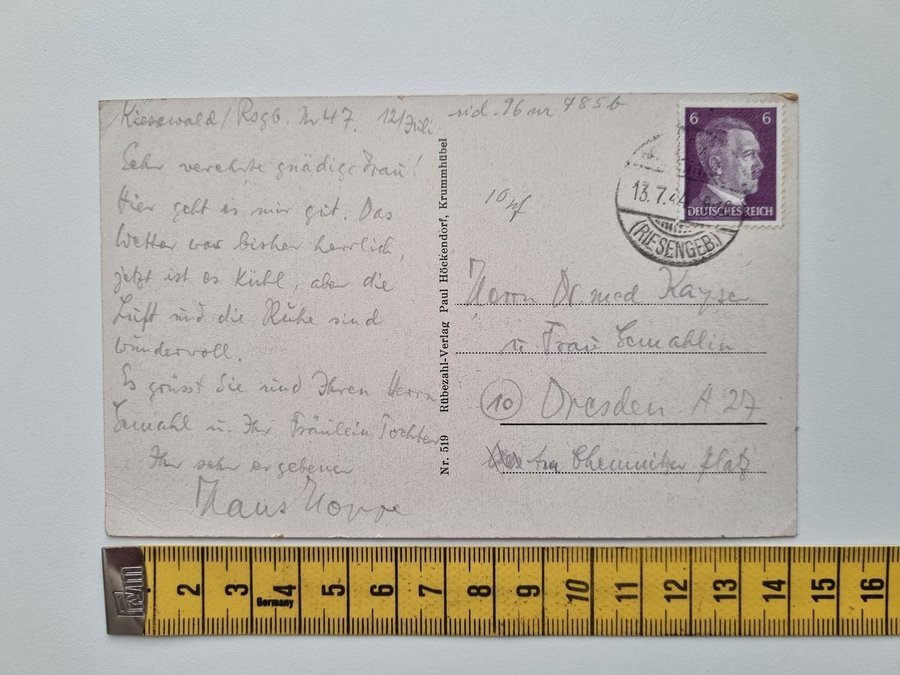 Kiesewald/Rsgb. Nr 47. 12/Juli
Sehr verehrte gnädige Frau!
Hier geht es mir gut. Das
Wetter war bisher herrlich,
jetzt ist es kühl, aber die
Luft und die Ruhe sind
wundervoll.
Es grüsst Sie und Ihren Herrn
Gemahl u. Ihr Fräulein Tochter
Ihr sehr ergebener
Hans Hoppe
Nr. 519 Rübezahl-Verlag Paul Höckendorf, Krummhübel
96 nr 485b
10
6 6
DEUTSCHES REICH
13.7.44
(RIESENGEB.)
Herrn Dr. med Kayser
u Frau Gemahlin
10 Dresden A 27
Am Chemnitzer Platz
2 3 4 5 6 7 8 9 10 11 12 13 14 15 16
Germany